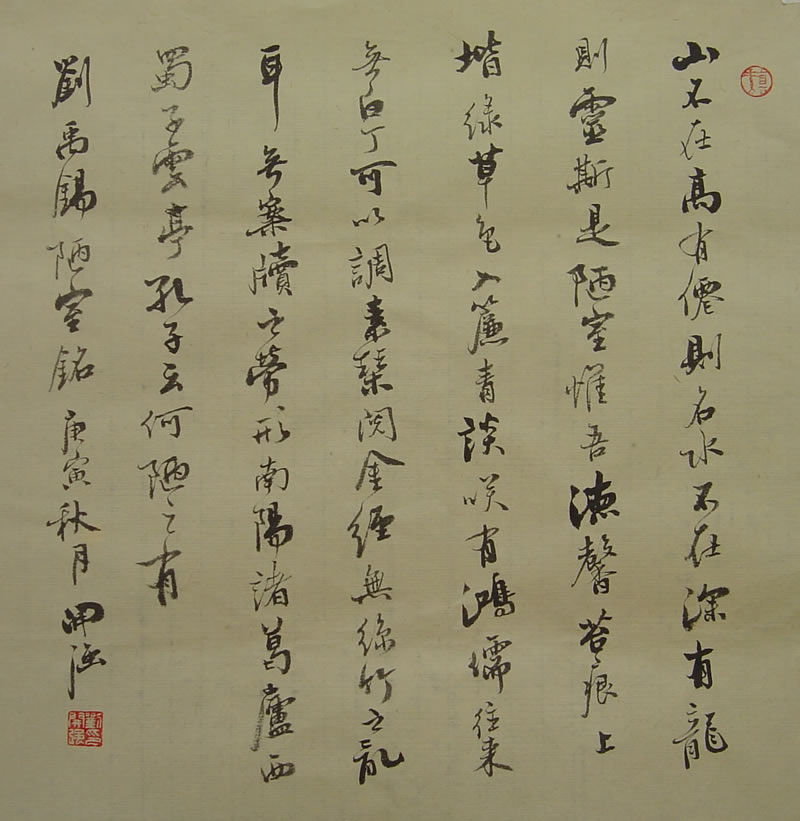 山不在高有僊則名水不在深有龍
則靈斯是陋室惟吾德馨苔痕上
堦綠草色入簾青談咲有鴻儒往来
無白丁可以調素琴閱金經無絲竹之亂
耳無案牘之勞形南陽諸葛廬西
蜀子雲亭孔子云何陋之有
劉禹錫陋室銘庚寅秋月開強
劉印開強